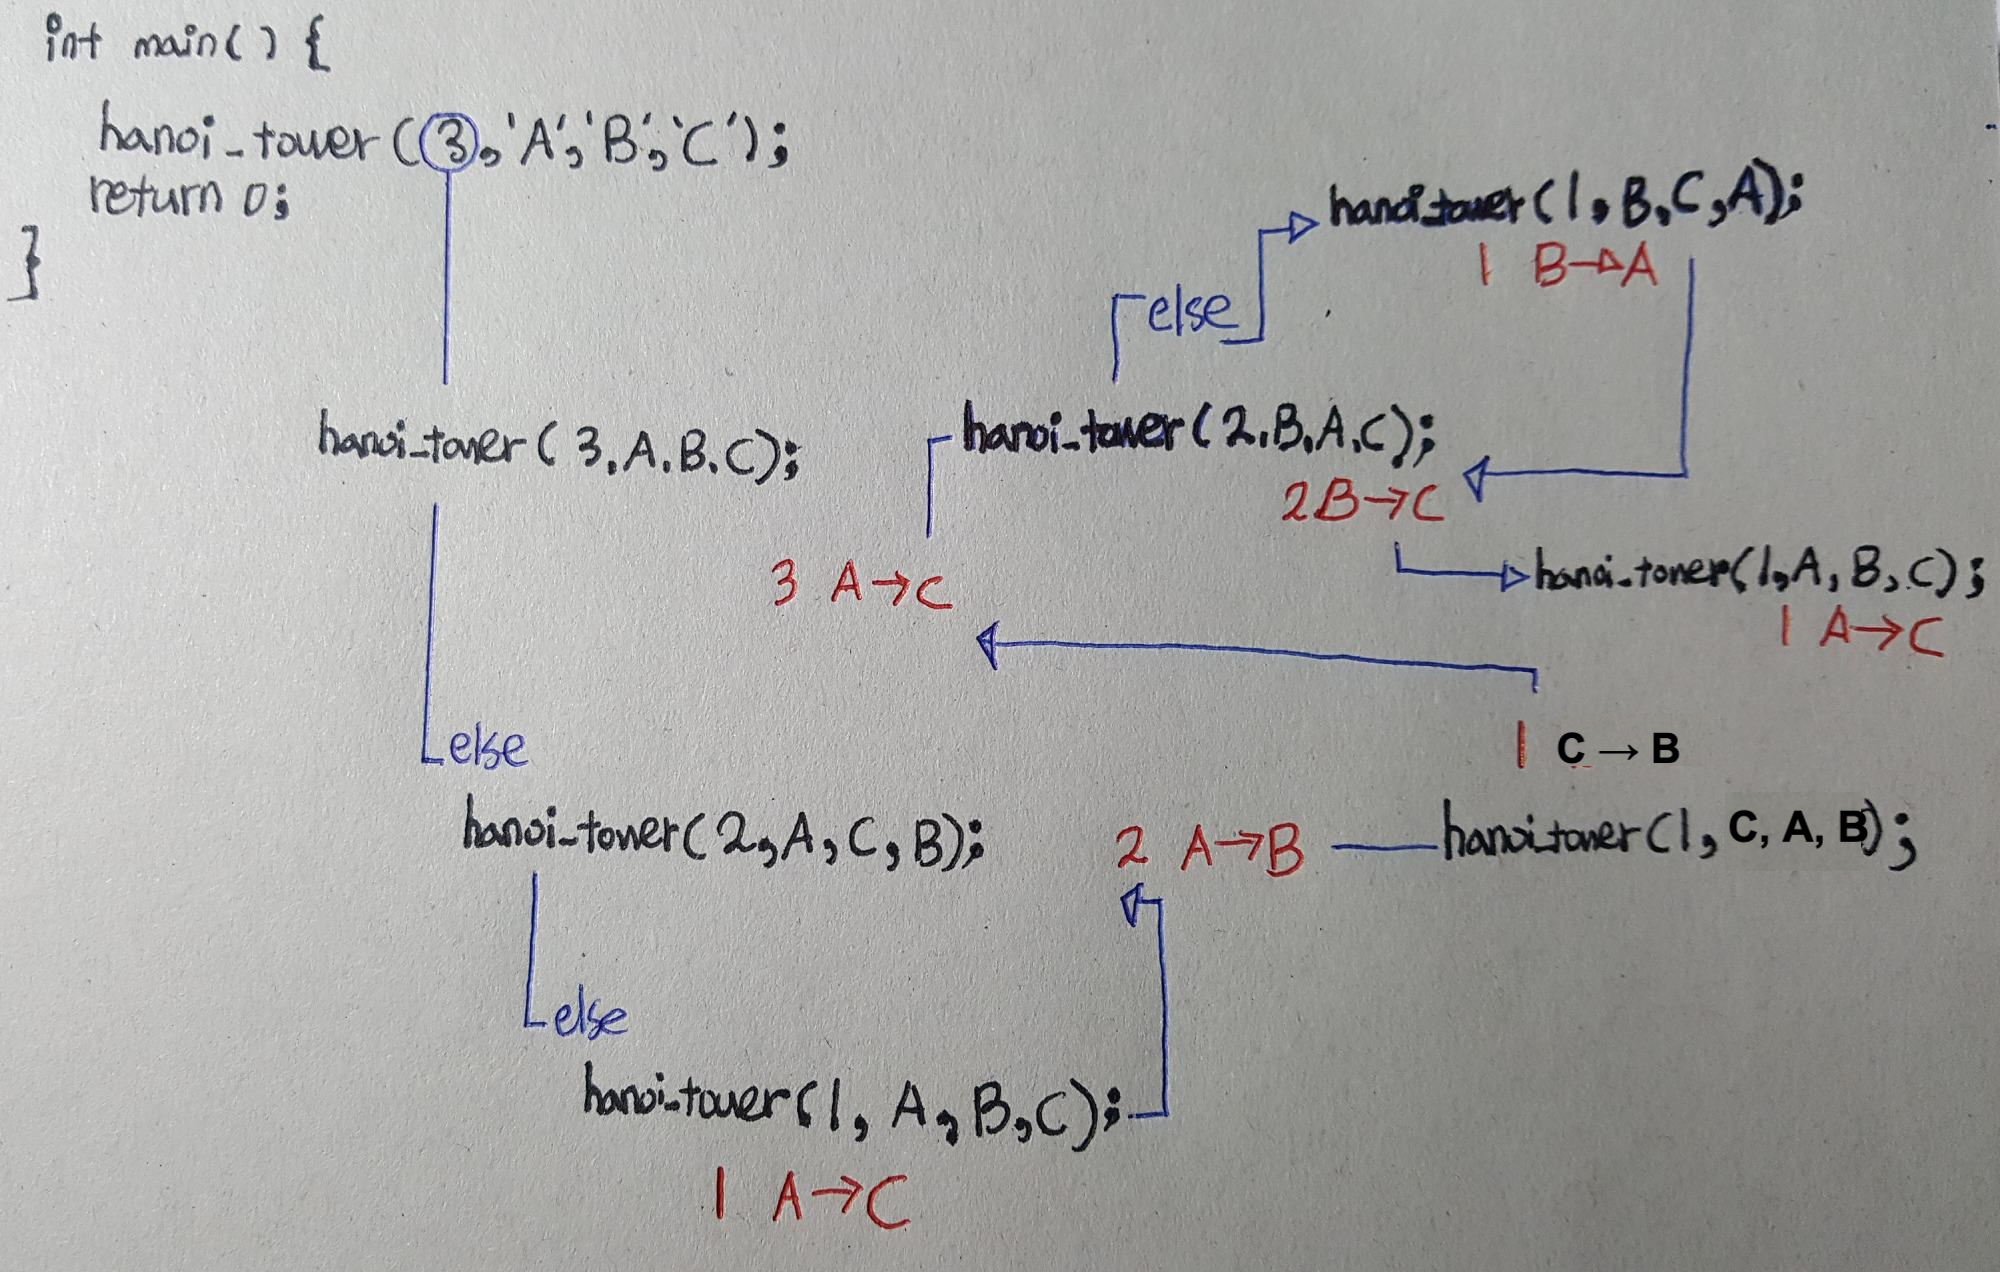 int main() {
hanoi_tower(3,'A','B','C');
return 0;
}
hanoi_tower(1,B,C,A);
1 B→A
else
hanoi_tower(3,A,B,C);
hanoi_tower(2,B,A,C);
2B→C
3 A→C
hanoi_tower(1,A,B,C);
1 A→C
else
1 C → B
hanoi_tower(2,A,C,B);
2 A→B
hanoi_tower(1, C, A, B);
else
hanoi_tower(1, A, B, C);
1 A→C